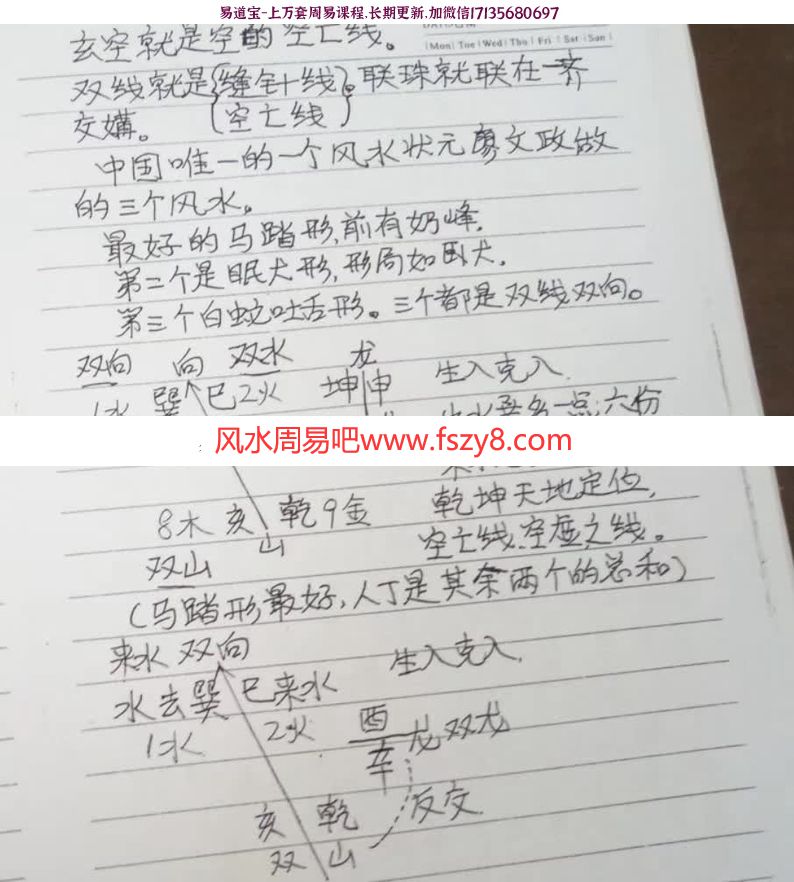 易道宝-上万套周易课程.长期更新.加微信17135680697
玄空就是空的空亡线。
Mon Tue Wed Thu Fri Sat Sun
双线就是{缝针线}。联珠就联在一齐
交媾。{空亡线}
中国唯一的一个风水状元廖文政做
的三个风水。
最好的马踏形,前有奶峰.
第二个是眠犬形,形局如卧犬.
第三个白蛇吐舌形。三个都是双线双向。
双向 向 双水 龙
1水 巽 巳2火 坤申 生入克入.
一点六份
风水周易吧www.fszy8.com
8木 亥 乾9金 乾坤天地定位,
双山 山 空亡线.空虚之线。
(马踏形最好,人丁是其余两个的总和)
来水 双向 生入克入.
水去巽 巳来水
1水 2火 酉辛 龙双龙
亥 乾 反交.
双 山